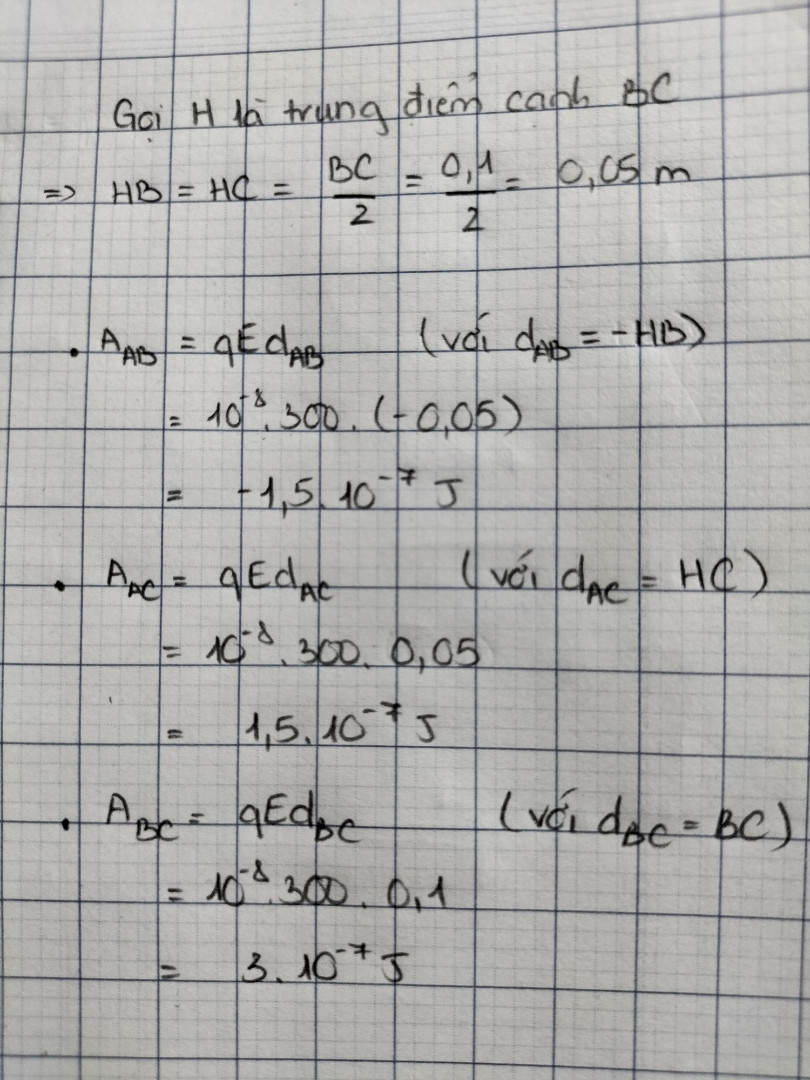 Gọi H là trung điểm cạnh BC
=> HB = HC = BC/2 = 0,1/2 = 0,05 m
• A_AB = qEd_AB (với d_AB = -HB)
= 10^-8 . 300 . (-0,05)
= -1,5 . 10^-7 J
• A_AC = qEd_AC (với d_AC = HC)
= 10^-8 . 300 . 0,05
= 1,5 . 10^-7 J
• A_BC = qEd_BC (với d_BC = BC)
= 10^-8 . 300 . 0,1
= 3 . 10^-7 J